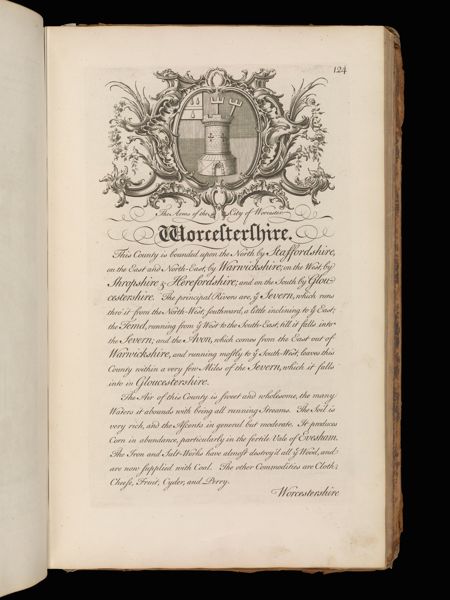 124
The Arms of the City of Worcester
Worcestershire.
This County is bounded upon the North by Staffordshire,
on the East and North-East, by Warwickshire; on the West, by
Shropshire & Herefordshire; and on the South by Glou-
cestershire. The principal Rivers are, ÿ Severn, which runs
thro' it from the North-West, southward, a little inclining to ÿ East;
the Temd, running from ÿ West to the South-East, till it falls into
the Severn; and the Avon, which comes from the East out of
Warwickshire, and running mostly to ÿ South-West, leaves this
County within a very few Miles of the Severn, which it falls
into in Gloucestershire.
The Air of this County is sweet and wholesome, the many
Waters it abounds with being all running Streams. The Soil is
very rich, and the Ascents in general but moderate. It produces
Corn in abundance, particularly in the fertile Vale of Evesham.
The Iron and Salt-Works have almost destroy'd all ÿ Wood, and
are now supplied with Coal. The other Commodities are Cloth,
Cheese, Fruit, Cyder, and Perry.
Worcestershire